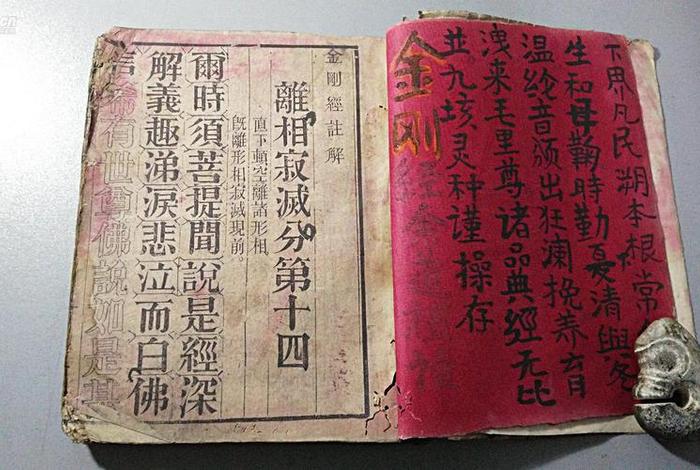 下界凡民朔本根常
生和母鞠時勤憂清與爸
温纶音颁出狂澜挽养育
洩来毛里尊诸品典經无比
並九垓灵种谨操存
金刚經
金剛經註解
離相寂滅分第十四
直下頓空離諸形相
既離形相寂滅現前。
爾時須菩提聞說是經深
解義趣涕淚悲泣而白佛
希有世尊佛說如是甚